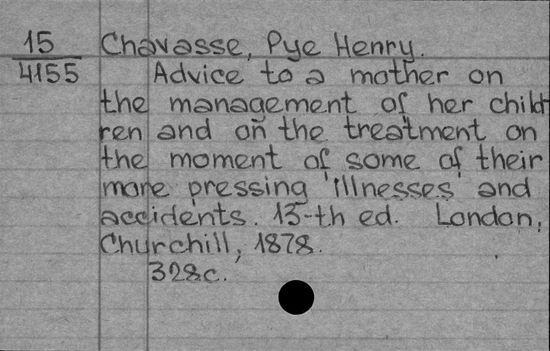 15
4155
Chavasse, Pye Henry.
Advice to a mother on
the management of her child
ren and on the treatment on
the moment of some of their
more pressing illnesses and
accidents. 13-th ed. London,
Churchill, 1878.
328c.